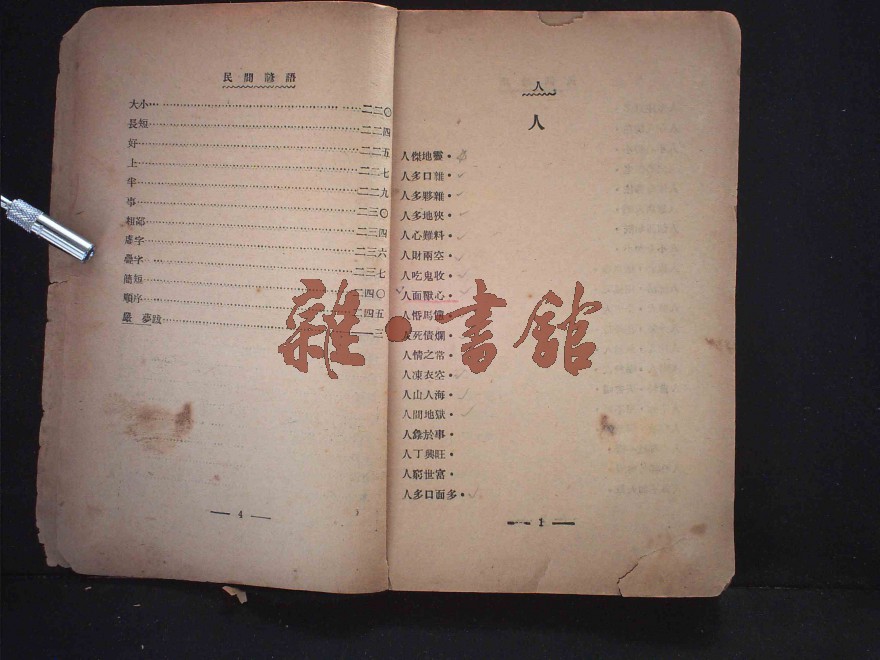 民間諺語
大小……二二〇
長短……二二四
好……二二五
上……二二七
半……二二九
事……二三〇
……二三四
虛字……二三六
疊字……二三七
簡短……二四〇
順序……二四五
嚴 夢跋……一三
— 4 —
人
人
人傑地靈•
人多口雜•
人多夥雜•
人多地狹•
人心難料•
人財兩空•
人吃鬼收•
人面獸心•
人馬•
人死債爛•
人情之常•
人凍衣空•
人山人海•
人間地獄•
人於事•
人丁興旺•
人窮世富•
人多口面多•
— 1 —
雜•書館